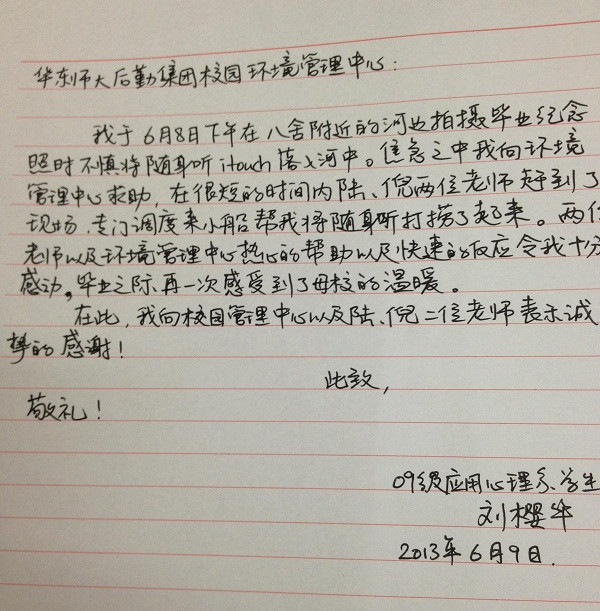 华东师大后勤集团校园环境管理中心:
我于6月8日下午在八舍附近的河边拍摄毕业纪念
照时不慎将随身听itouch落入河中。焦急之中我向环境
管理中心求助,在很短的时间内陆、倪两位老师赶到了
现场,专门调度来小船帮我将随身听打捞了起来。两位
老师以及环境管理中心热心的帮助以及快速的反应令我十分
感动。毕业之际再一次感受到了母校的温暖。
在此,我向校园管理中心以及陆、倪二位老师表示诚
挚的感谢!
此致,
敬礼!
09级应用心理系学生
刘樱华
2013年6月9日.